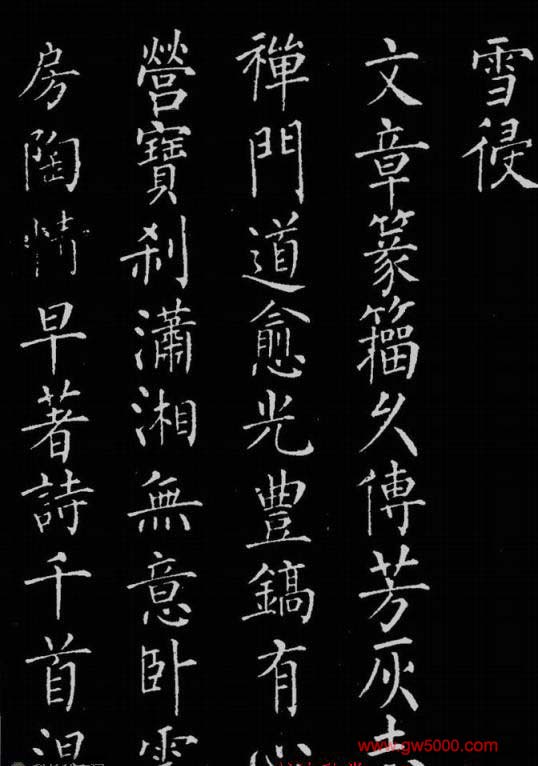 雪侵
文章篆籀久傳芳灰
禪門道愈光豐鎬有心
營寶刹瀟湘無意卧雲
房陶情早著詩千首
www.gw5000.com